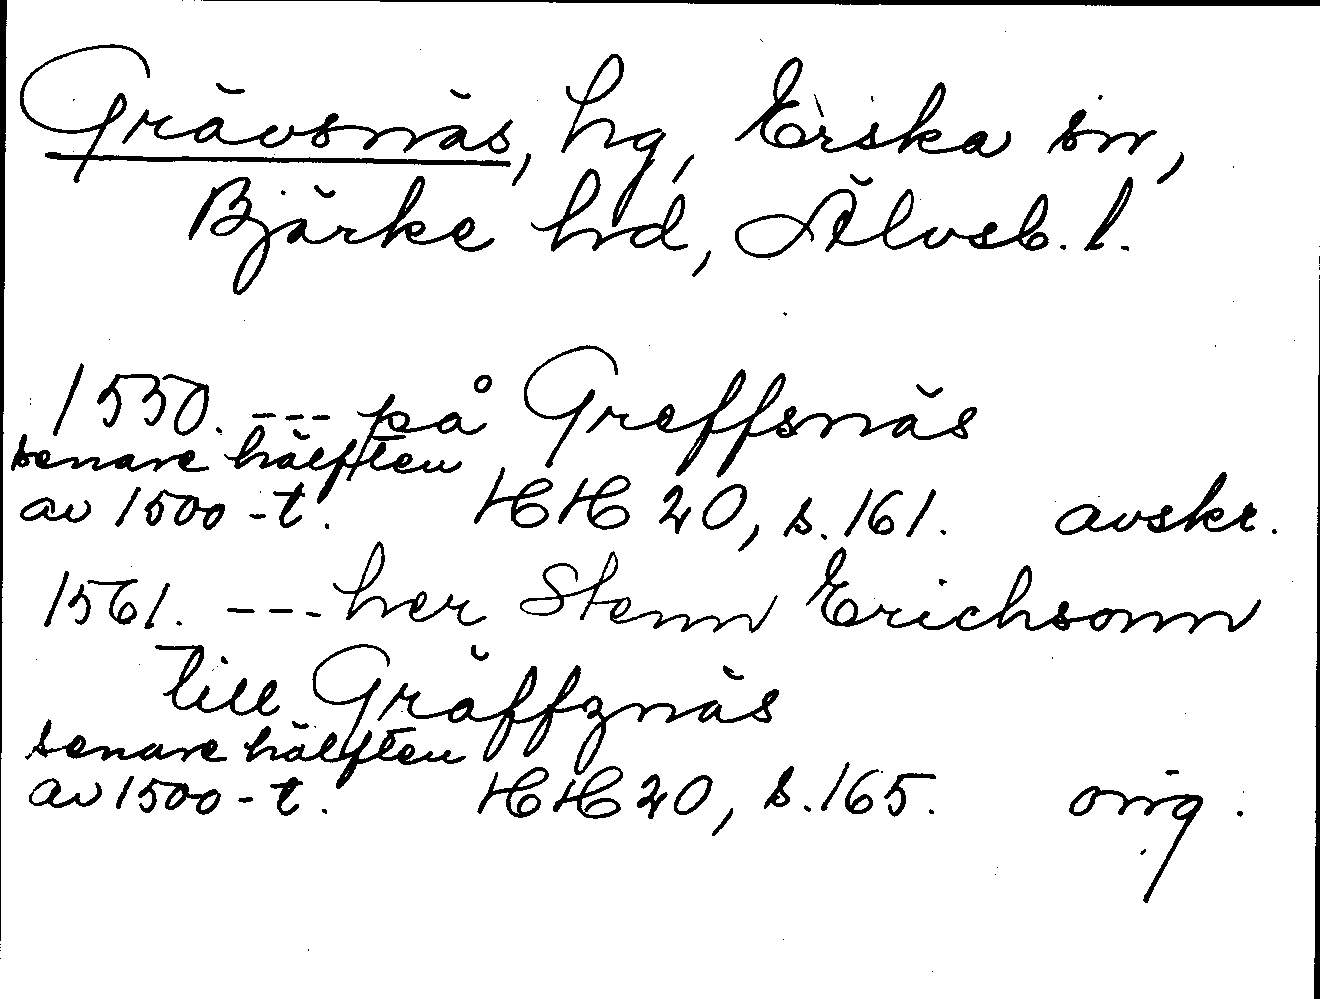 Grävsnäs, hg, Erska sn,
Bjärke hd, Älvsb. l.
1550. --- på Greffsnäs
senare hälften
av 1500-t. HH 20, s. 161. avskr.
1561. --- her Stenn Erichsonn
till Gräffznäs
senare hälften
av 1500-t. HH 20, s. 165. orig.